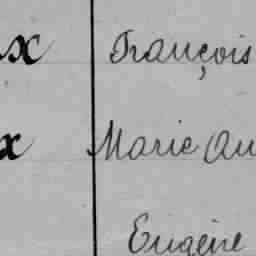 x François
x Marie Au
Eugène